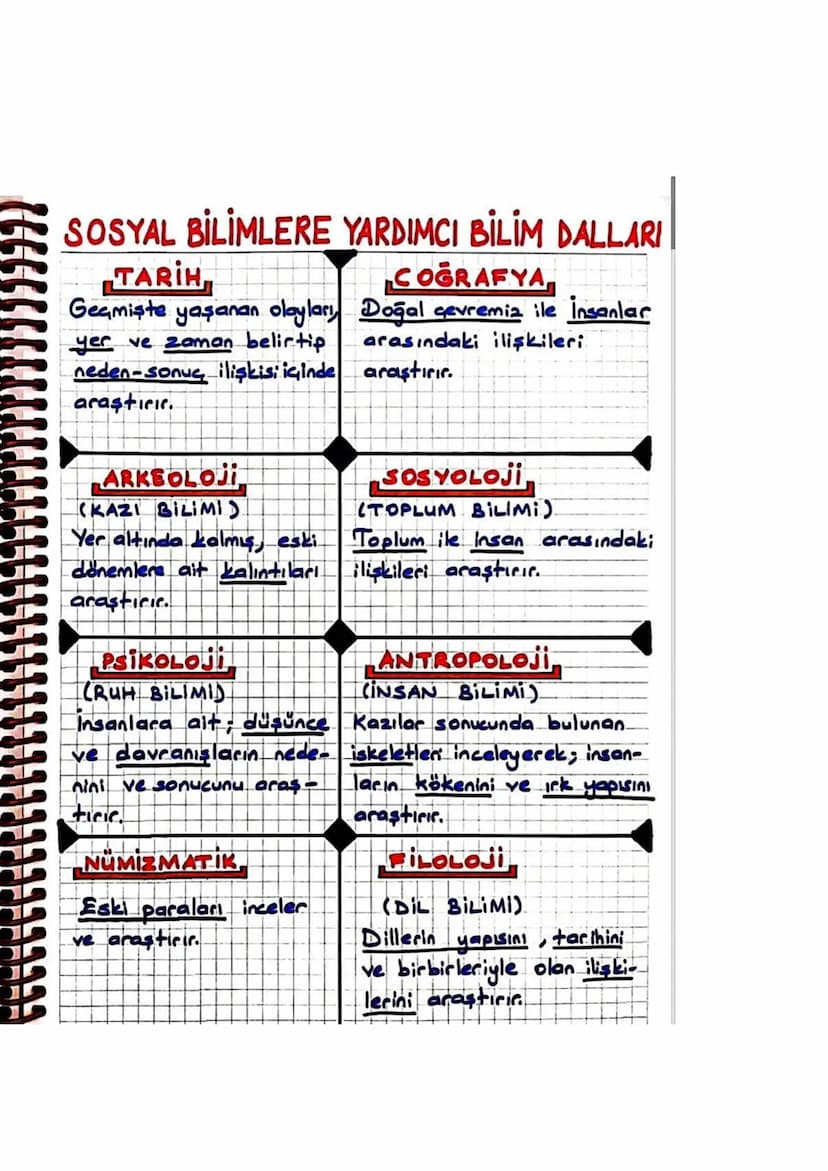 SOSYAL BİLİMLERE YARDIMCI BİLİM DALLARI
TARİH
Geçmişte yaşanan olayları,
yer ve zaman belirtip
neden-sonuç ilişkisi içinde
araştırır.
COĞRAFYA
Doğal çevremiz ile İnsanlar
arasındaki ilişkileri
araştırır.
ARKEOLOJİ
(KAZI BİLİMİ)
Yer altında kalmış, eski
dönemlere ait kalıntıları
araştırır.
SOSYOLOJİ
(TOPLUM BİLİMİ)
Toplum ile İnsan arasındaki
ilişkileri araştırır.
PSİKOLOJİ
(RUH BİLİMİ)
İnsanlara ait; düşünce
ve davranışların nede-
nini ve sonucunu araş-
tırır.
ANTROPOLOJİ
(İNSAN BİLİMİ)
Kazılar sonucunda bulunan
iskeletleri inceleyerek; insan-
ların kökenini ve ırk yapısını
araştırır.
NÜMİZMATİK
Eski paraları inceler
ve araştırır.
FİLOLOJİ
(DİL BİLİMİ)
Dillerin yapısını, tarihini
ve birbirleriyle olan ilişki-
lerini araştırır.